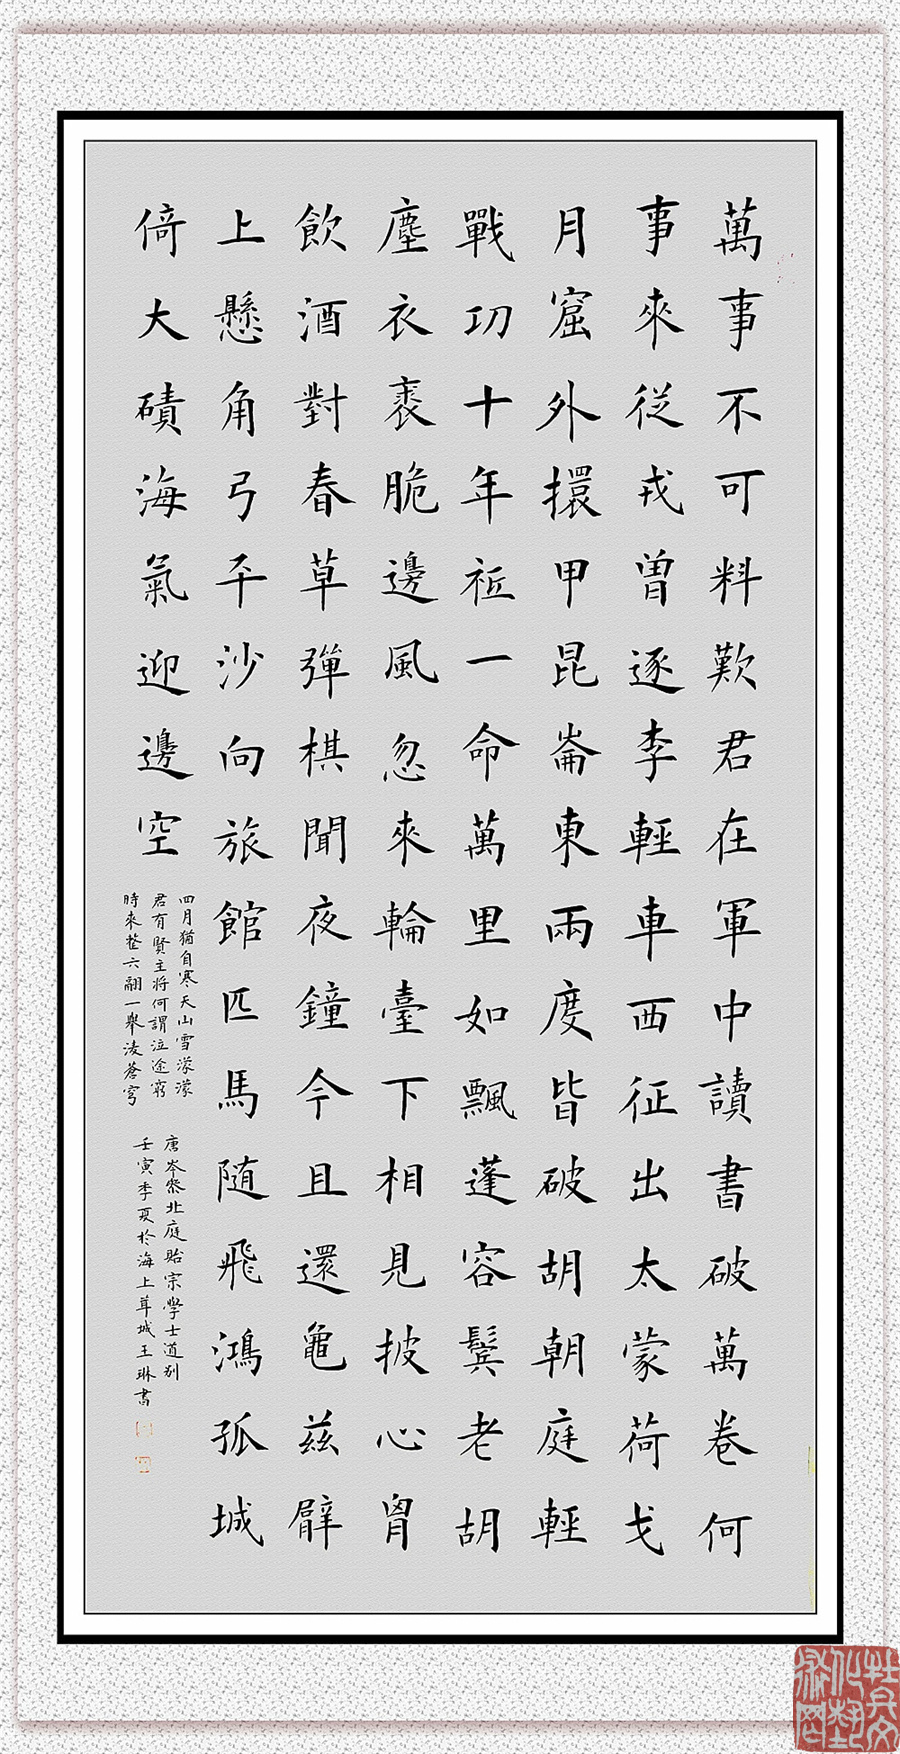 萬事不可料歎君在軍中讀書破萬卷何
事來從戎曾逐李輕車西征出太蒙荷戈
月窟外擐甲昆崙東兩度皆破胡朝庭輕
戰功十年祗一命萬里如飄蓬容鬓老胡
塵衣裘脆邊風忽來輪臺下相見披心胷
飲酒對春草彈棋聞夜鐘今且還龜茲臂
上懸角弓平沙向旅館匹馬随飛鴻孤城
倚大磧海氣迎邊空
四月猶自寒天山雪濛濛
君有賢主将何謂泣途窮
時來整六翮一舉淩蒼穹
唐岑參北庭貽宗學士道别
壬寅季夏於海上茸城王琳書